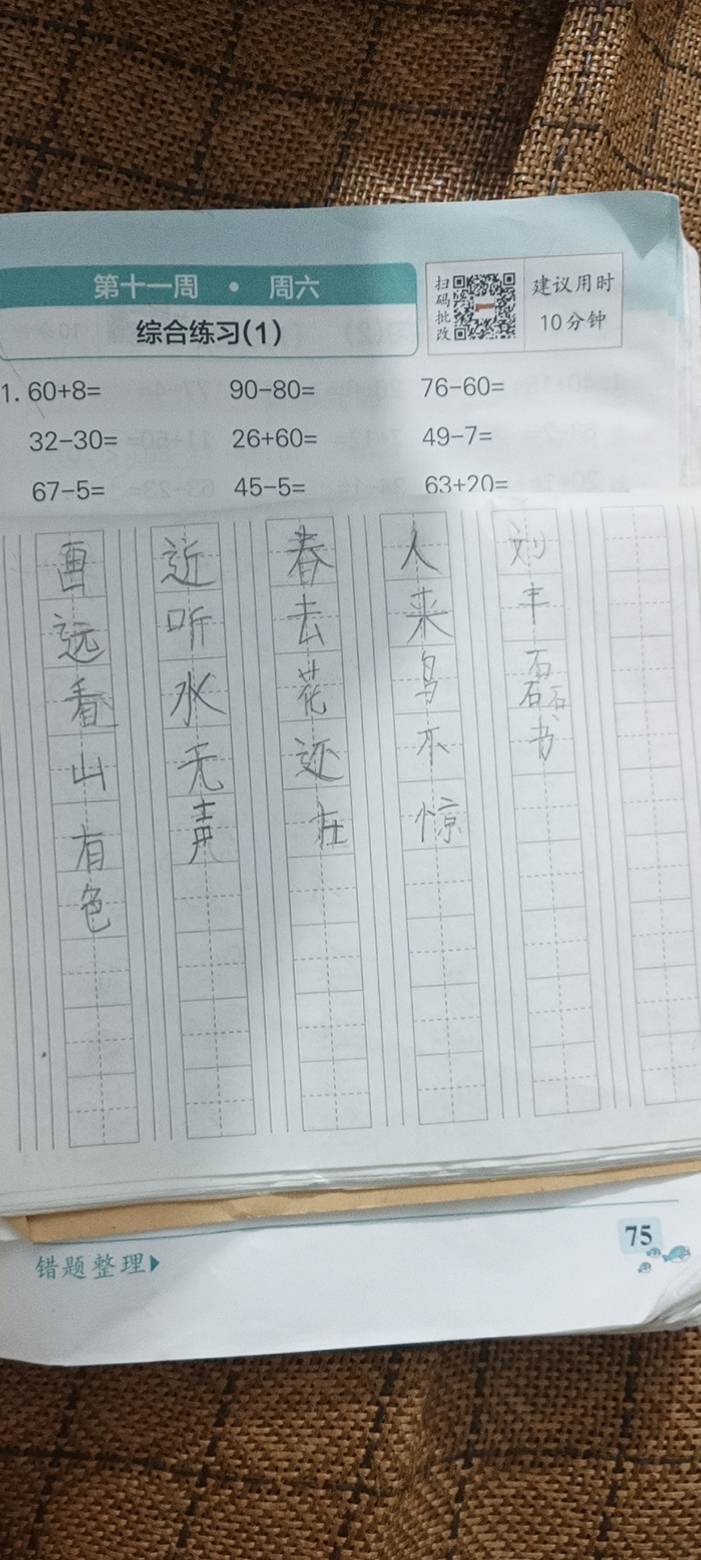 第十一周 · 周六
综合练习(1)
扫码批改
建议用时
10分钟
1. 60+8= 90-80= 76-60=
32-30= 26+60= 49-7=
67-5= 45-5= 63+20=
画远看山有色
近听水无声
春去花还在
人来鸟不惊
刘丰磊书
错题整理
75